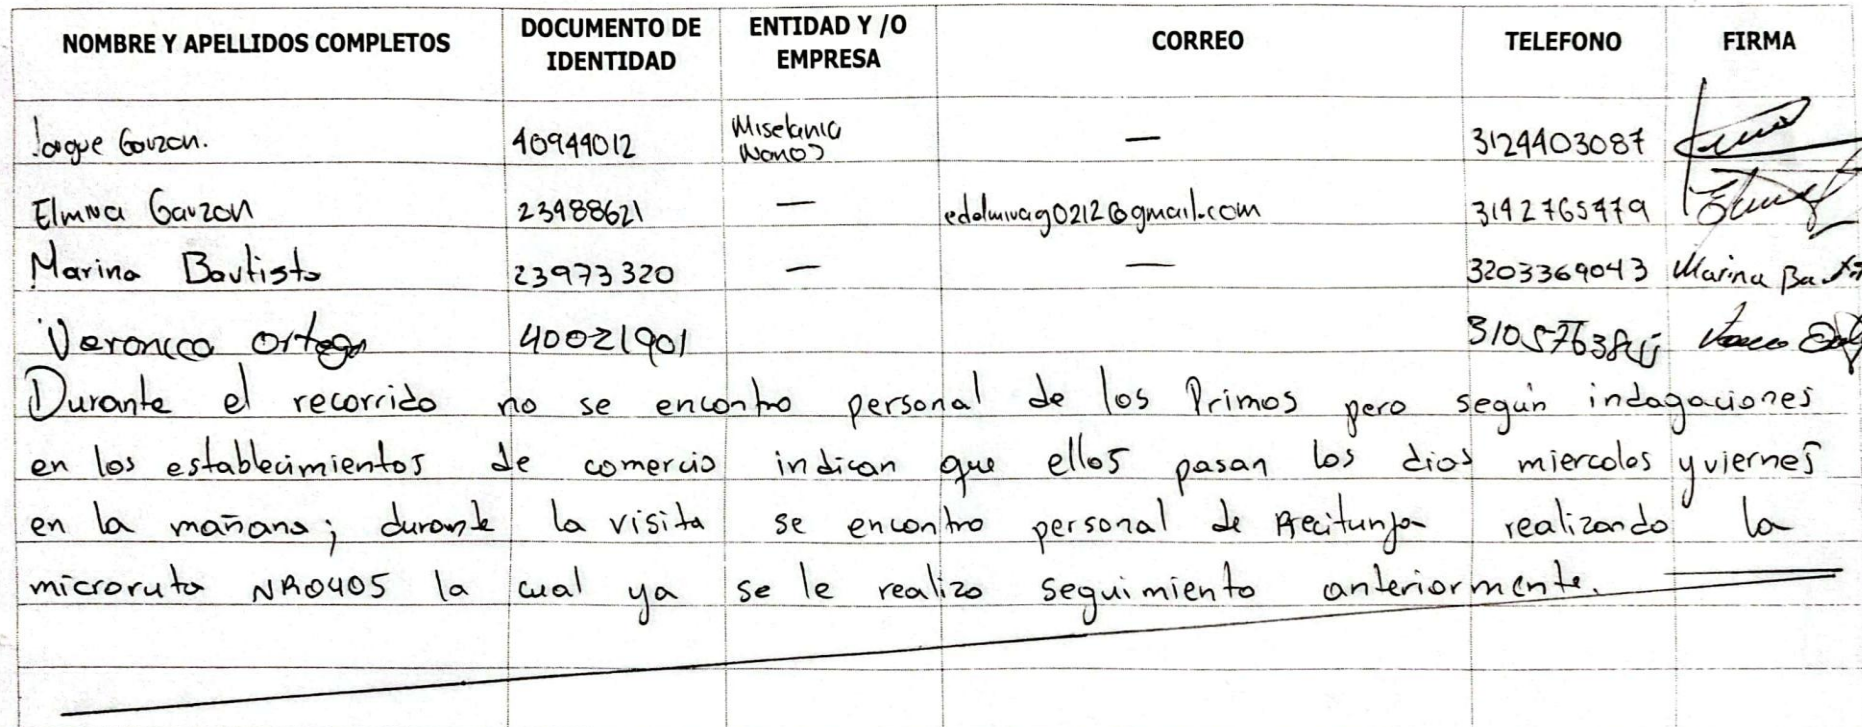 NOMBRE Y APELLIDOS COMPLETOS DOCUMENTO DE IDENTIDAD ENTIDAD Y /O EMPRESA CORREO TELEFONO FIRMA
40944012 — 3124403087
Elmiva Garzon 23988621 — 3142765979
Marina Bautista 23973320 — — 3203369043 Marina
Veronica Ortega 40021901
Durante el recorrido no se encontro personal de los Primos pero según indagaciones
en los establecimientos de comercio indican que ellos pasan los dias miercoles y viernes
en la mañana; durante la visita se encontro personal de realizando la
microruta NR0405 la cual ya se le realizo seguimiento anteriormente.